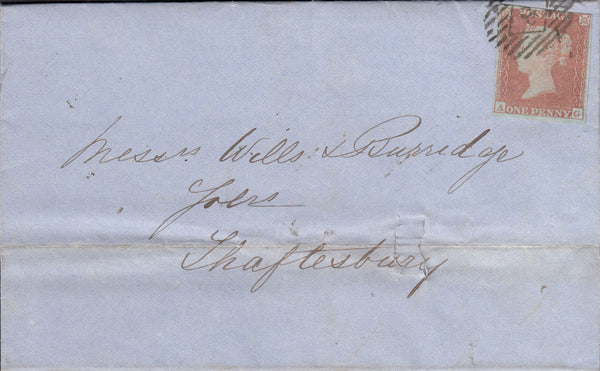 POSTAGE
A ONE PENNY G
Messrs Wills & Burridge
Shaftesbury